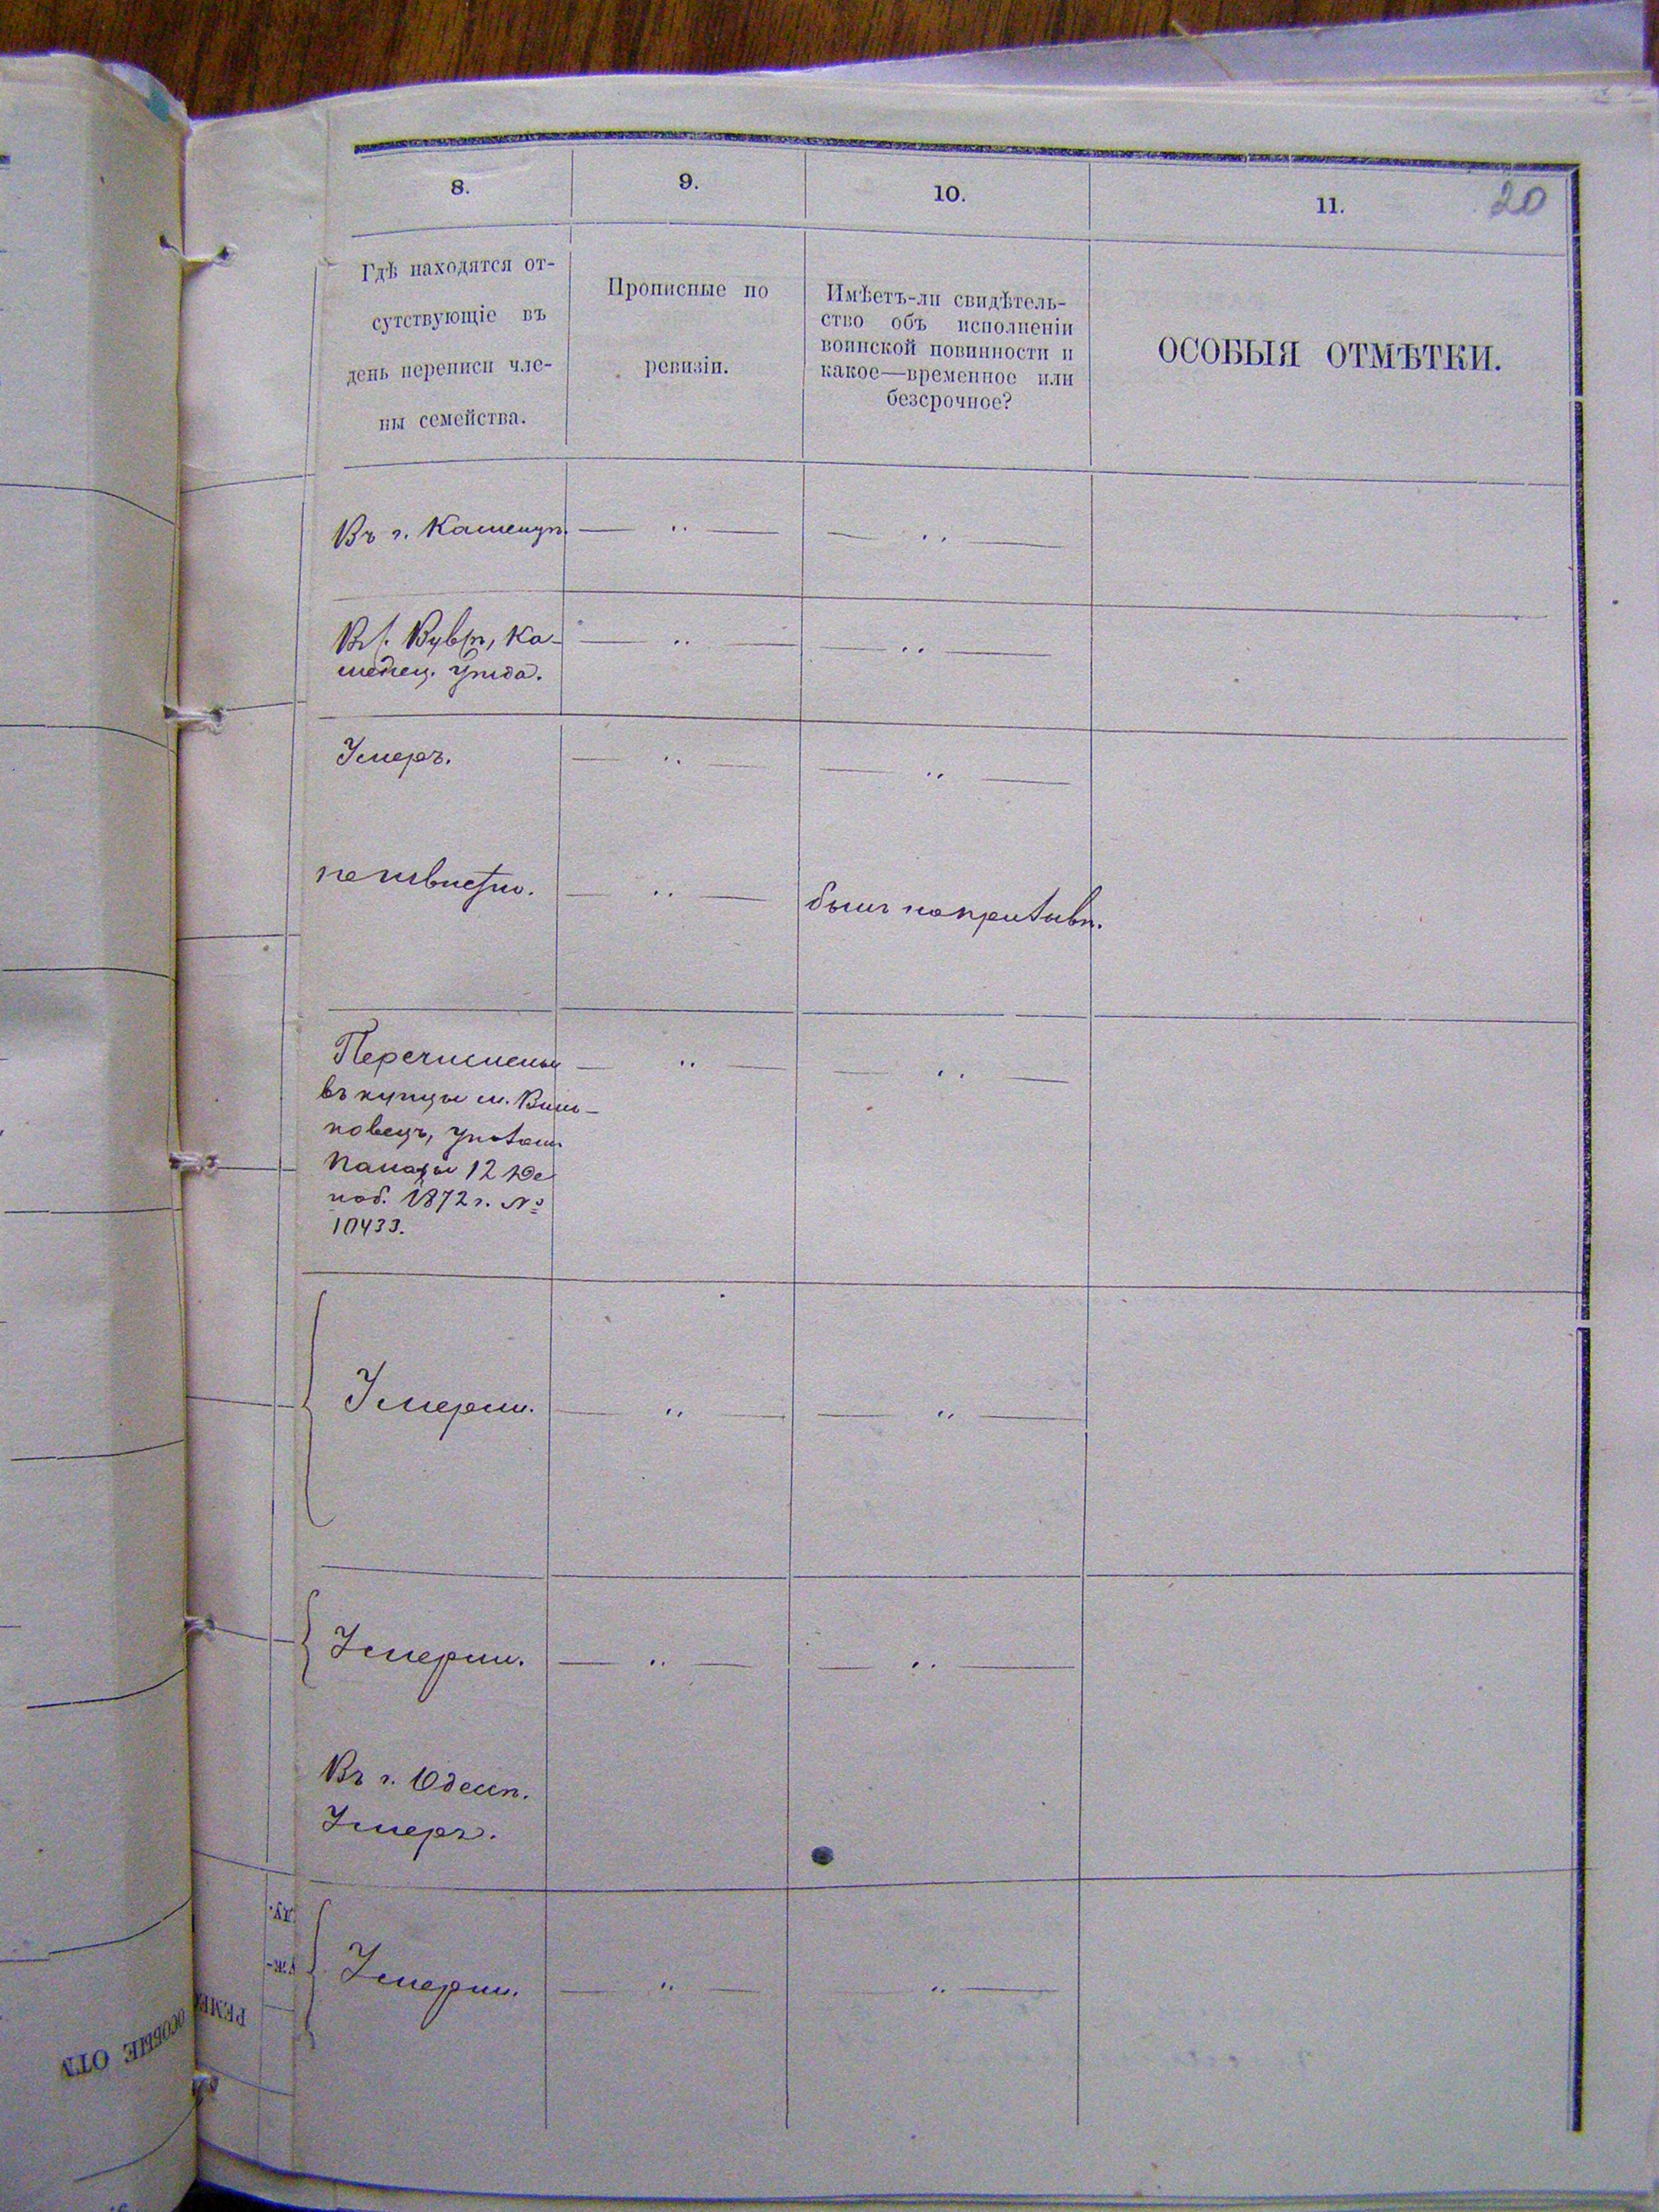 8.
9.
10.
11.
20
Гдѣ находятся от-
сутствующіе въ
день переписи чле-
ны семейства.
Прописные по
ревизіи.
Имѣетъ-ли свидѣтель-
ство объ исполненіи
воинской повинности и
какое—временное или
безсрочное?
ОСОБЫЯ ОТМѢТКИ.
Въ г. Каменцѣ. — „ — — „ —
Ка-
менец. уѣзда. — „ — — „ —
Умеръ. — „ — — „ —
неизвѣстно. — „ —
былъ
Перечислены — „ — — „ —
въ купцы м. Виш-
новецъ,
Палаты 12 Де
1872 г. №
10433.
Умерли. — „ — — „ —
Умерли. — „ — — „ —
Въ г. Одессѣ.
Умеръ.
Умерли. — „ — — „ —
ОСОБЫЕ ОТМ